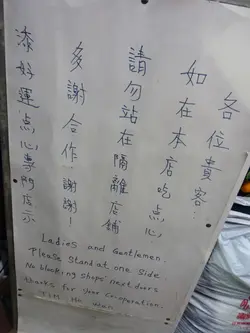 各位貴客:
如在本店吃点心
請勿站在隔離店鋪
多謝合作!謝謝!
添好運点心專門店示
Ladies and Gentlemen.
Please Stand at one side
No blocking shops next doors!
thanks for your co-operation.
TIM Ho Wan